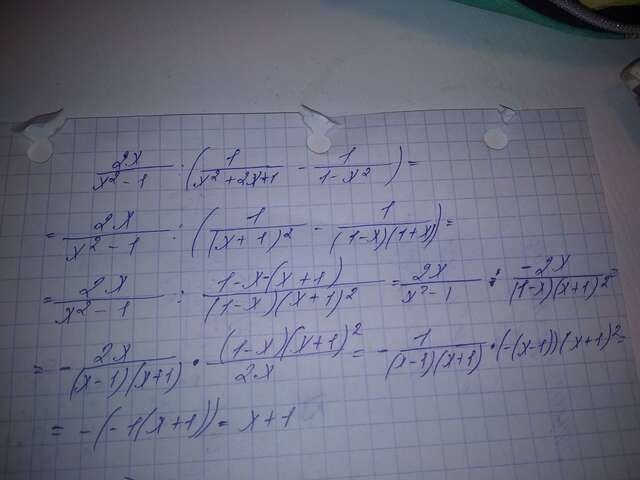 2x/(x² - 1) : (1/(x² + 2x + 1) - 1/(1 - x²)) =
= 2x/(x² - 1) : (1/(x + 1)² - 1/((1 - x)(1 + x))) =
= 2x/(x² - 1) : (1 - x - (x + 1))/((1 - x)(x + 1)²) = 2x/(x² - 1) : (-2x)/((1 - x)(x + 1)²) =
= - 2x/((x - 1)(x + 1)) · ((1 - x)(x + 1)²)/2x = - 1/((x - 1)(x + 1)) · (-(x - 1))(x + 1)² =
= -(-1(x + 1)) = x + 1